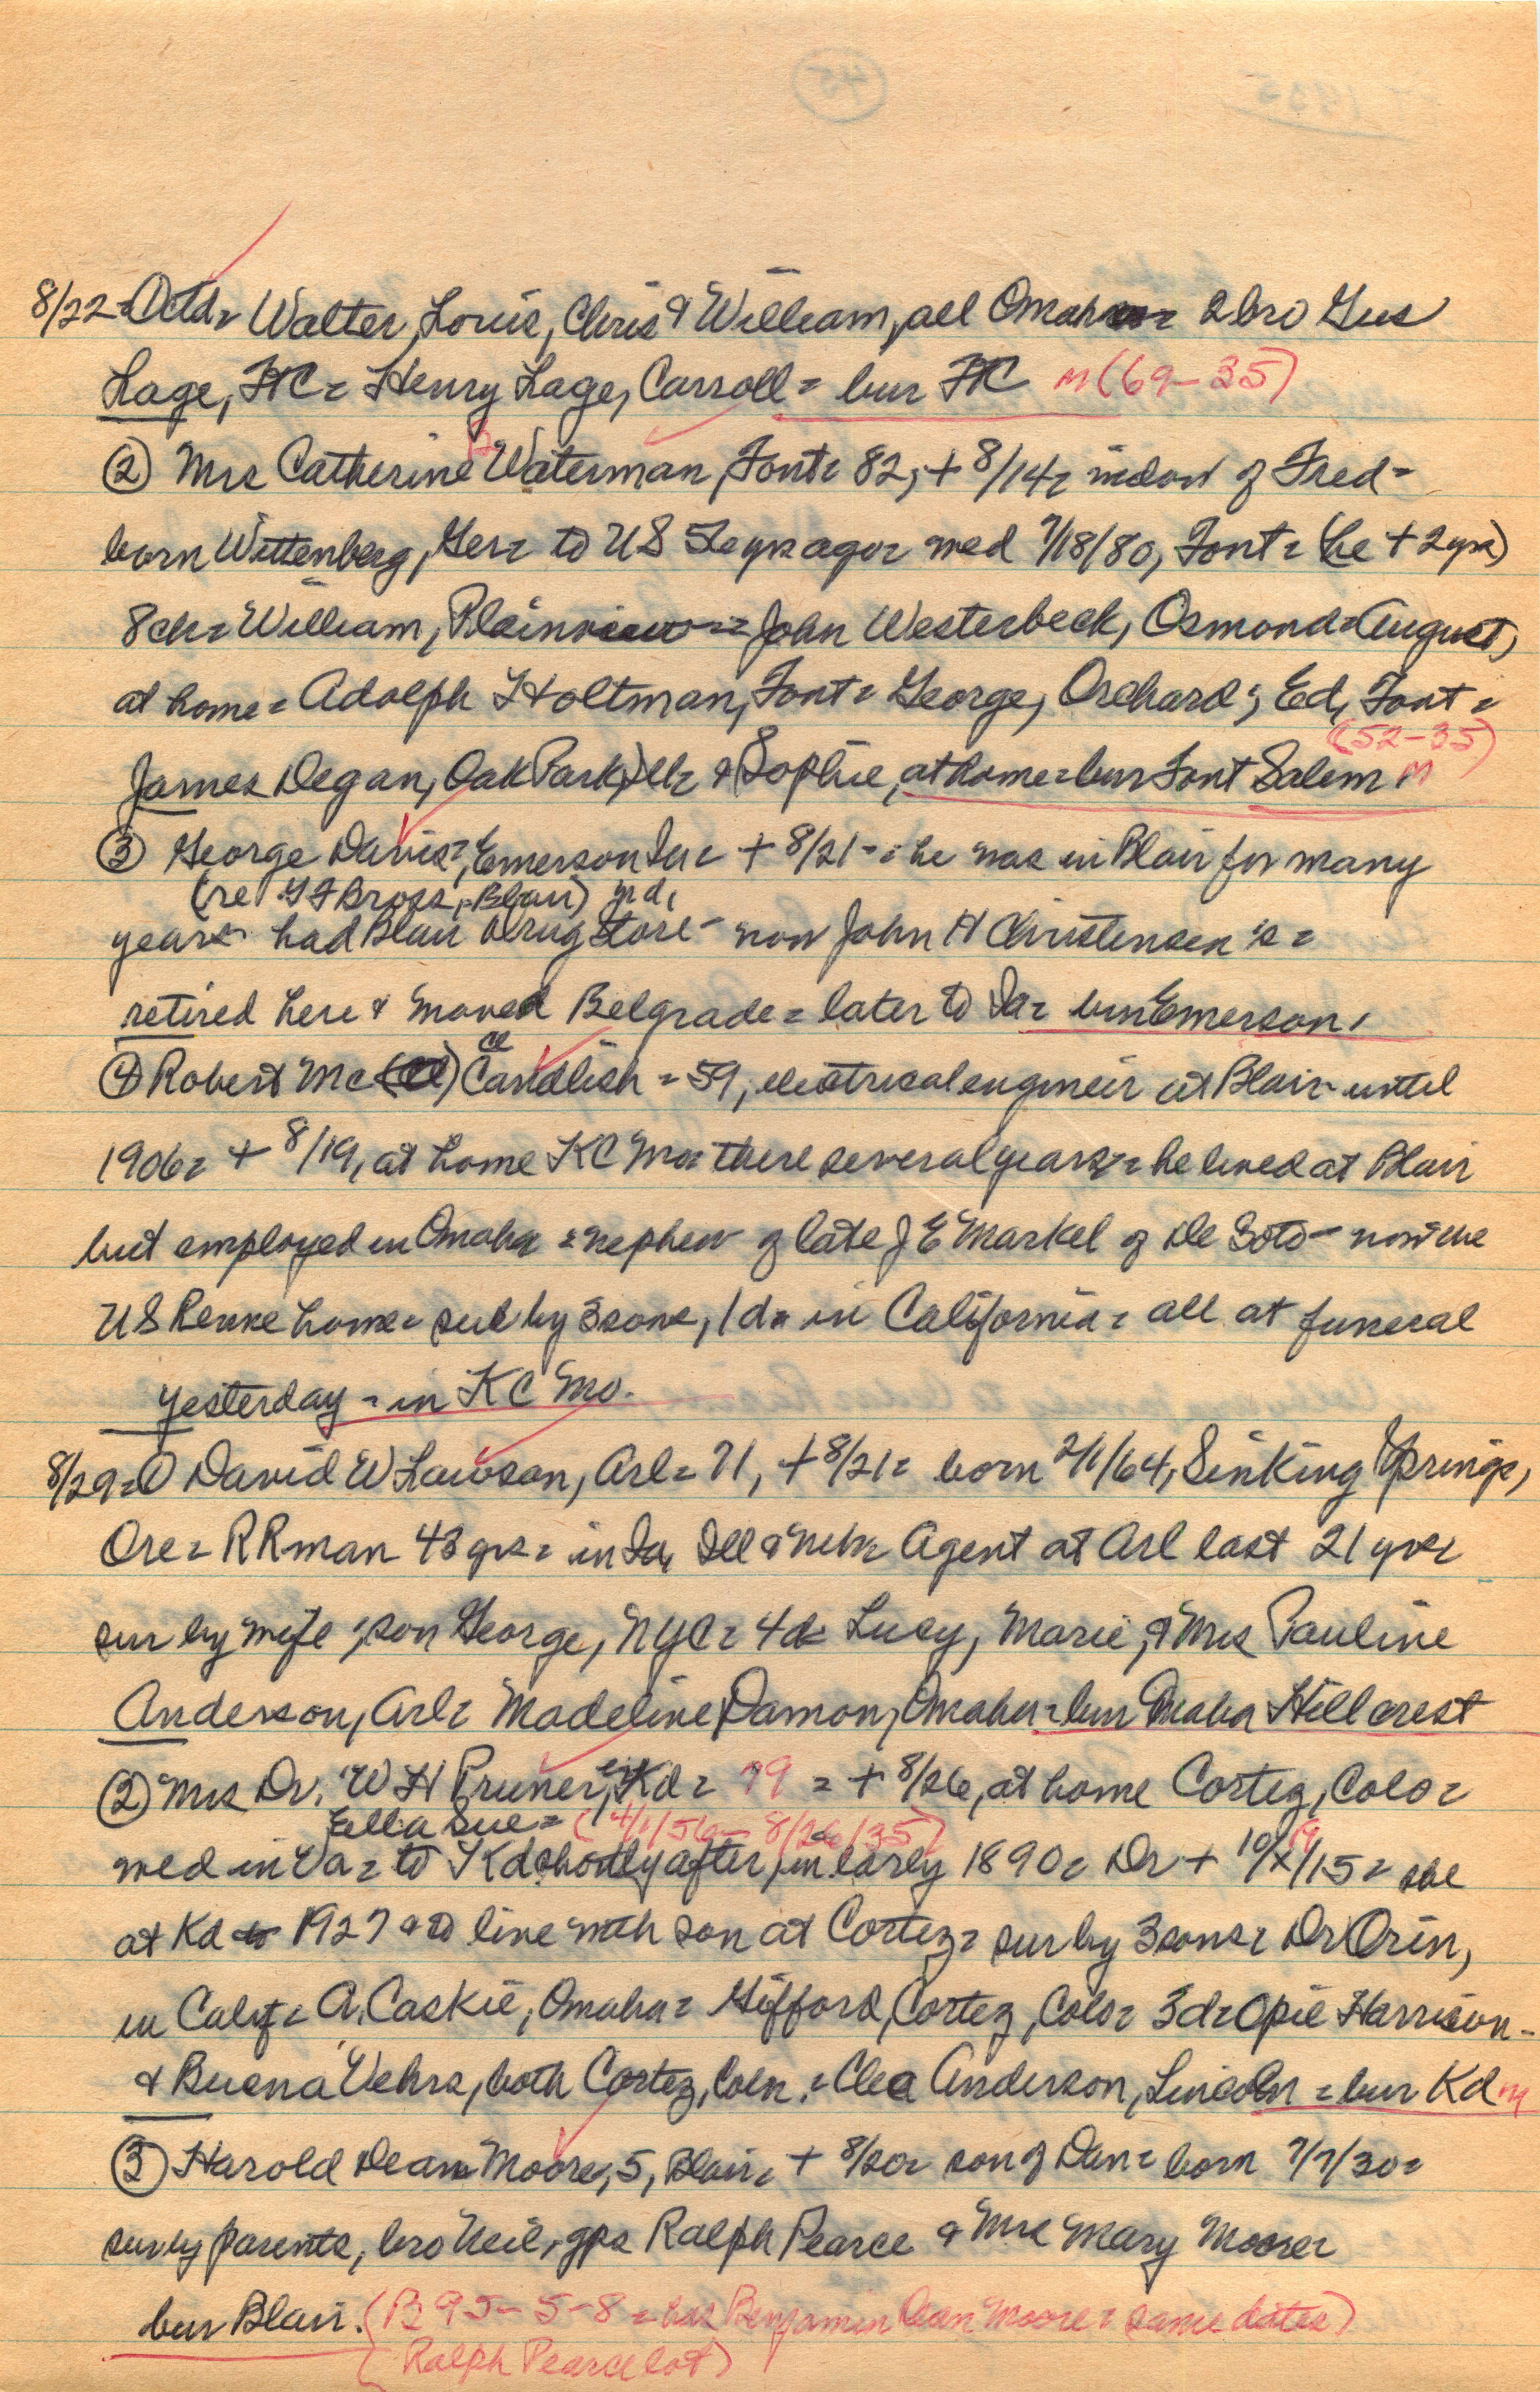 8/22 = Ctd = Walter, Louis, Chris & William, all Omaha = 2 bro Gus
Lage, FtC = Henry Lage, Carroll = bur FtC M (69-35)
② Mrs Catherine Waterman, Font = 82, + 8/14 = widow of Fred -
born Wittenberg, Ger = to US yrs ago = med 7/18/80, Font = (he + 2 yrs)
8 ch = William, Plainview = John Westerbeck, Osmond = August,
at home = Adolph Holtman, Font = George, Orchard; Ed, Font =
(52-35)
James Degan, Oak Park, Ill = & Sophie, at home = bur Font Salem M
③ George Davis =, Emerson Ia = + 8/21 = he was in Blair for many
(rel G F Bross, Blair)
years had Blair Drug Store - now John H Christensen's =
retired here & moved Belgrade = later to Ia = bur Emerson.
④ Robert Mc Candlish = 59, electrical engineer at Blair until
1906 = + 8/19, at home KC Mo = there several years = he lived at Blair
but employed in Omaha = nephew of late J E Markel of De Soto - now the
US home = sur by 3 sons, 1 d = in California = all at funeral
yesterday = in KC Mo.
8/29 = ① David W Lawson, Arl = 71, + 8/21 = born 2/1/64, Sinking Springs,
Ore = RR man 43 yrs = in Ia, Ill & Neb = Agent at Arl last 21 yrs =
sur by wife; son George, NYC = 4 d = Lucy, Marie, & Mrs Pauline
Anderson, Arl = Madeline Damon, Omaha = bur Omaha Hillcrest
② Mrs Dr. W H Pruner, Kd = 79 = + 8/26, at home Cortez, Colo =
Ella Sue = (4/1/56 - 8/26/35)
med in Va = to Kd shortly after, in early 1890 = Dr + 10/ /15 = she
at Kd to 1927 & to live with son at Cortez = sur by 3 sons = Dr Orin,
in Calif = A. Caskie, Omaha = Gifford, Cortez, Colo = 3 d = Opie Harrison -
& Buena Vehrs, both Cortez, Colo. = Clea Anderson, Lincoln = bur Kd M
③ Harold Dean Moore, 5, Blair = + 8/20 = son of Dan = born 7/7/30 =
sur by parents, bro Neil, gps Ralph Pearce & Mrs Mary Moore =
bur Blair. (B 95-5-8 = has Benjamin Dean Moore = same dates)
(Ralph Pearce lot)